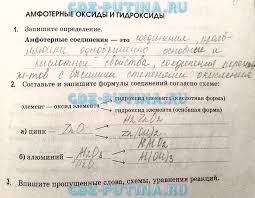 GDZ-PUTINA.RU
АМФОТЕРНЫЕ ОКСИДЫ И ГИДРОКСИДЫ
1. Запишите определение.
Амфотерные соединения — это соединения, прояв-
одновременно основные и
кислотные свойства, соединения
с высшими степенями окисления
2. Составьте и запишите формулы соединений согласно схеме:
гидроксид элемента (кислотная форма)
элемент — оксид элемента
гидроксид элемента (основная форма)
H2ZnO2
а) цинк — ZnO
Zn(OH)2
б) алюминий — Al2O3
Al(OH)3
3. Впишите пропущенные слова, схемы, уравнения реакций.
GDZ-PUTINA.RU